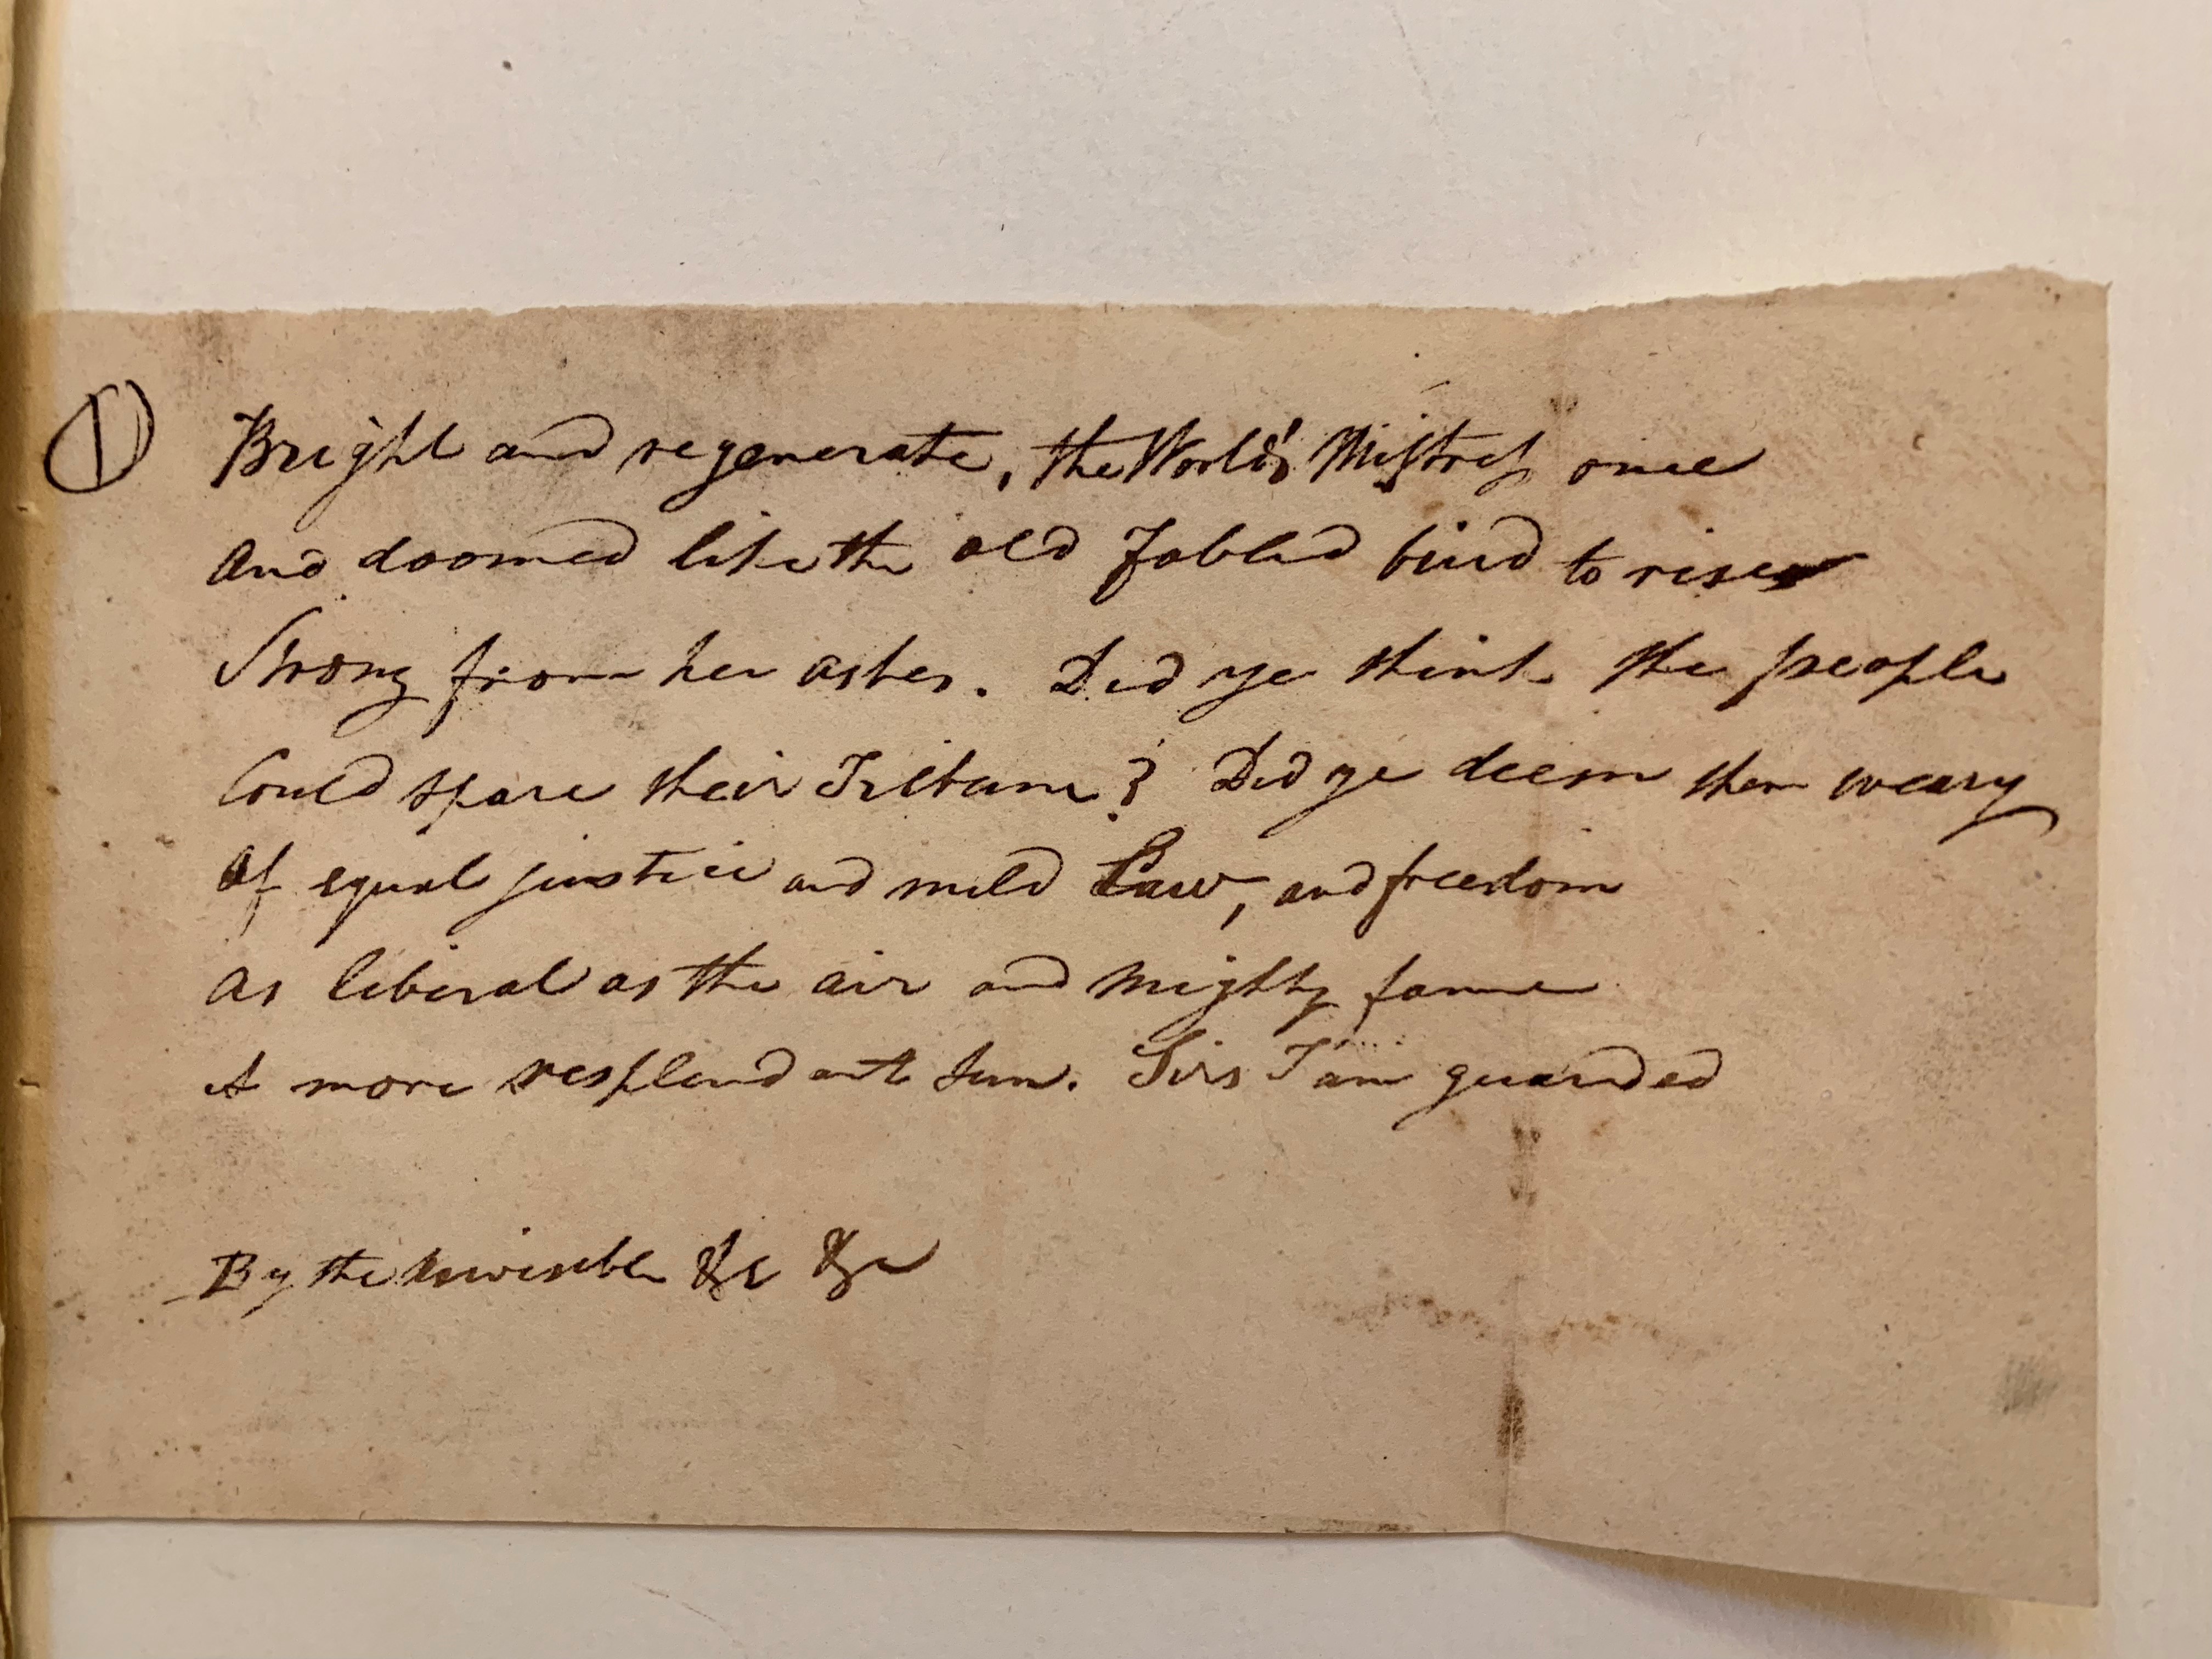 ① Bright and regenerate, the World's Mistress once
And doomed like the old Fabled bird to rise
Strong from her ashes. Did ye think the people
Could spare their Tribune? Did ye deem them weary
Of equal justice and mild Law, and freedom
As liberal as the air and mighty fame
A more resplendant sun. Sirs I am guarded
By the invisible &c &c